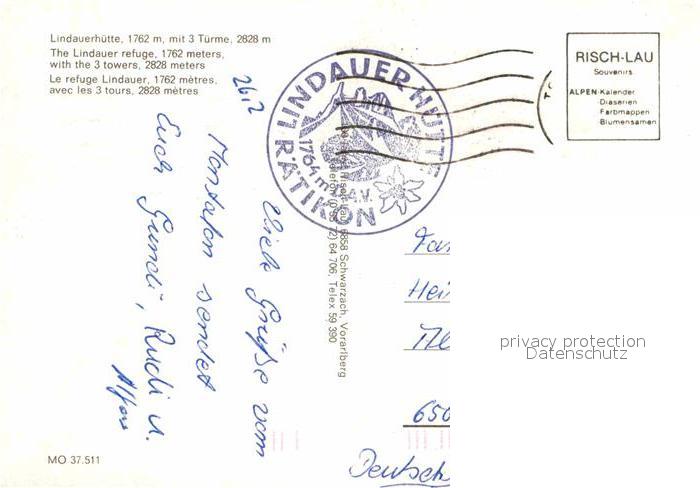 Lindauerhütte, 1762 m, mit 3 Türme, 2828 m
The Lindauer refuge, 1762 meters,
with the 3 towers, 2828 meters
Le refuge Lindauer, 1762 mètres,
avec les 3 tours, 2828 mètres
26.2
Viele Grüße vom
Montafon sendet
Euch Gundi, Rudi u.
Alfons
LINDAUER HÜTTE
1764 m
A.V.
RÄTIKON
Risch-Lau, 6858 Schwarzach, Vorarlberg
64 706, Telex 59 390
RISCH-LAU
Souvenirs
ALPEN-Kalender
-Diaserien
-Farbmappen
-Blumensamen
Fam
Hei
650
Deutsch
privacy protection
Datenschutz
MO 37.511